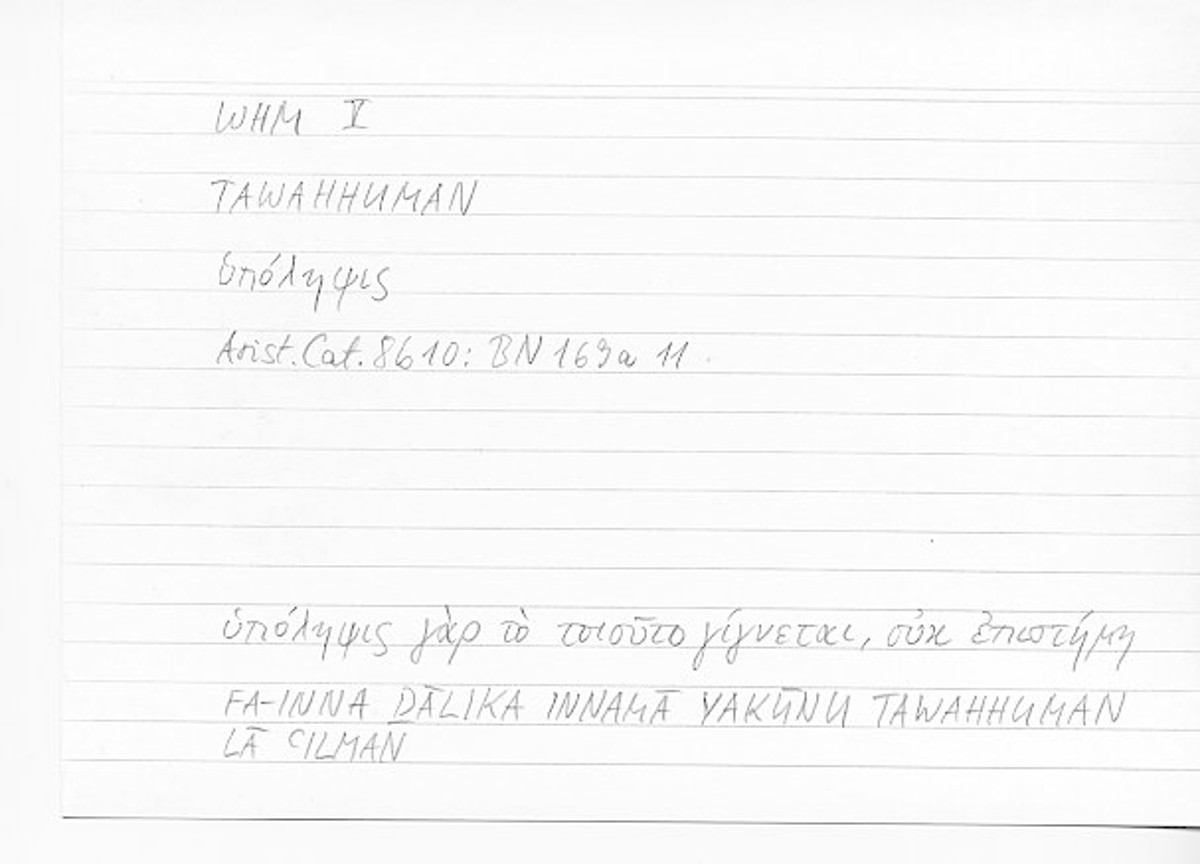 WHM V
TAWAHHUMAN
ὑπόληψις
Arist. Cat. 8b10: BN 169a 11
ὑπόληψις γὰρ τὸ τοιοῦτο γίγνεται, οὐκ ἐπιστήμη
FA-INNA ḎĀLIKA INNAMĀ YAKŪNU TAWAHHUMAN
LĀ ʿILMAN